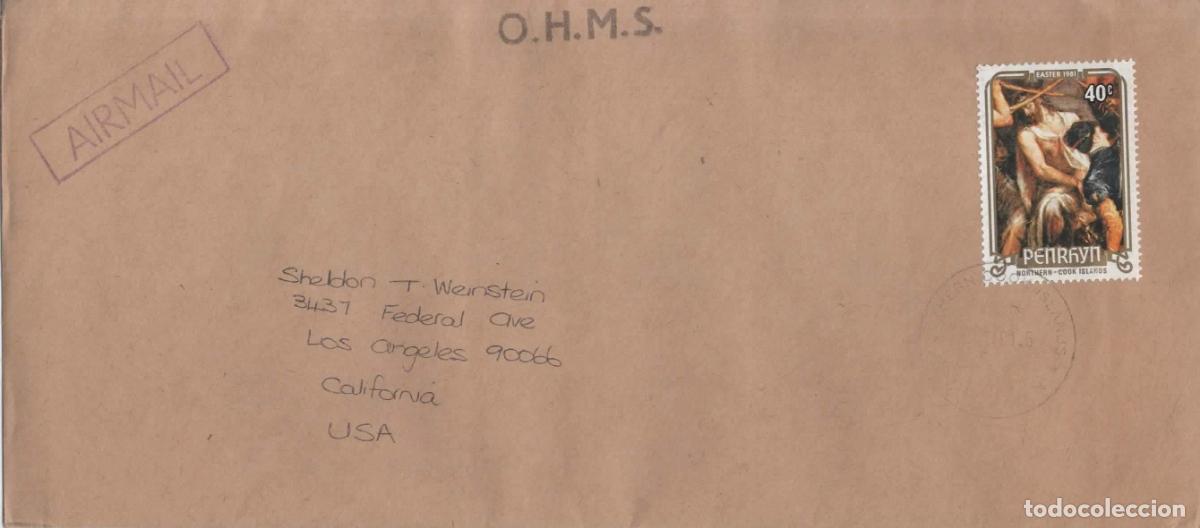 O.H.M.S.
AIRMAIL
EASTER 1981
40c
PENRHYN
NORTHERN - COOK ISLANDS
Sheldon T. Weinstein
3437 Federal Ave
Los Angeles 90066
California
USA
ISLANDS
todocoleccion